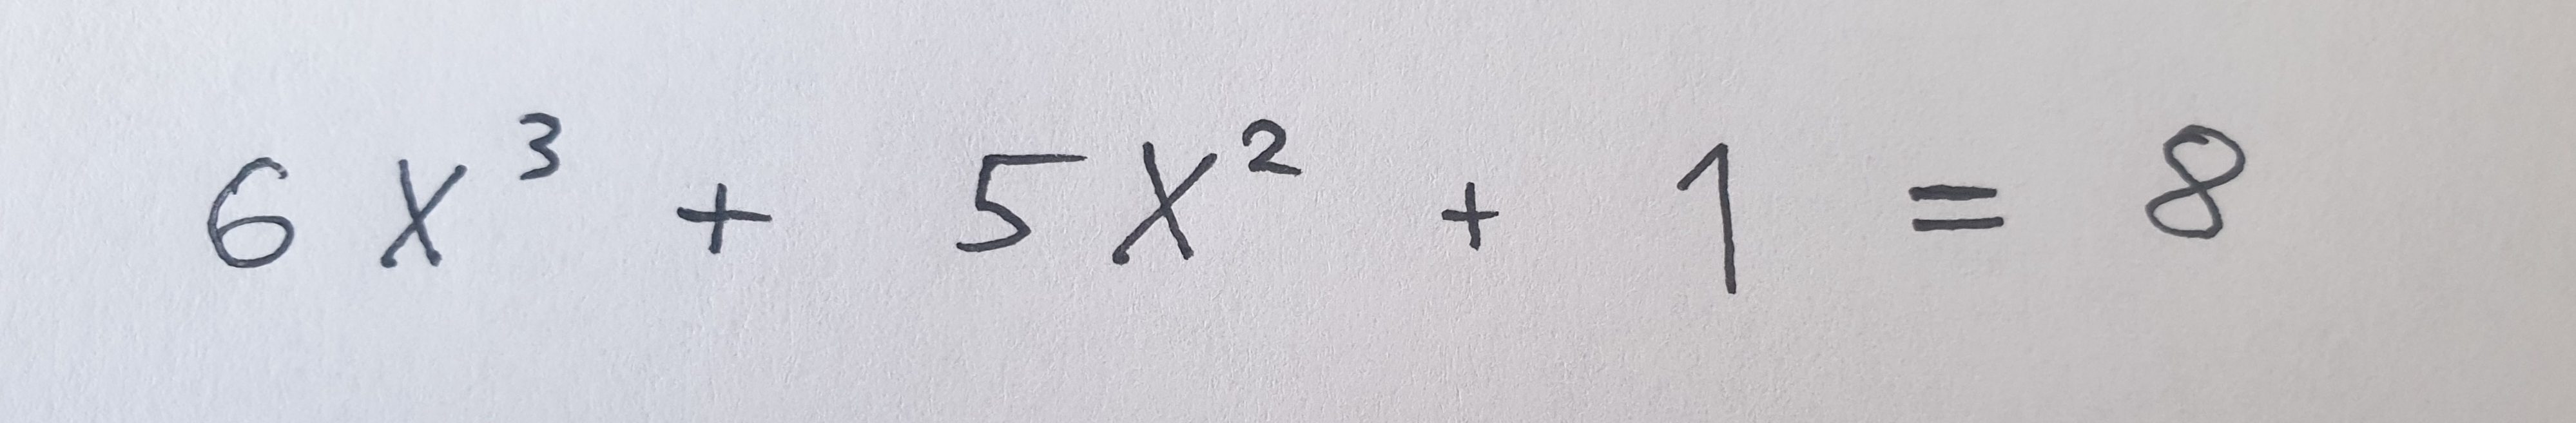 6x³ + 5x² + 1 = 8